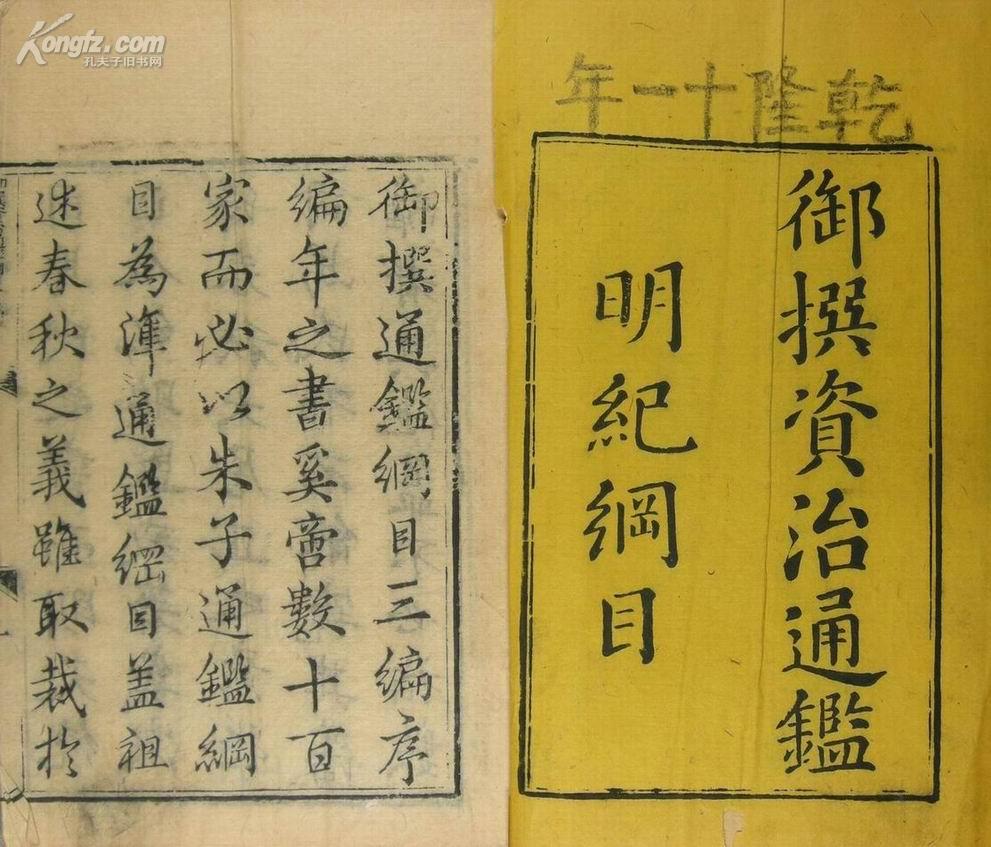 Kongfz.com
孔夫子旧书网
乾隆十一年
御撰資治通鑑
明紀綱目
御撰通鑑綱目三編序
編年之書奚啻數十百
家而必以朱子通鑑綱
目為準通鑑綱目蓋祖
述春秋之義雖取裁於